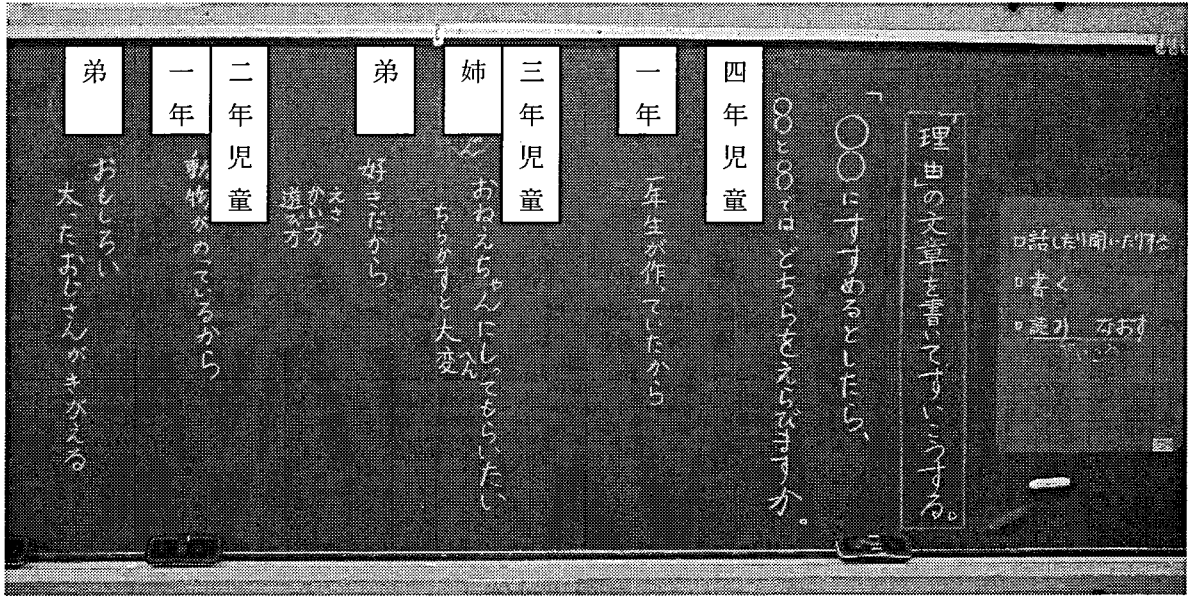 □話したり聞いたりする
□書く
□読み なおす
「理由」の文章を書いてすいこうする。
「○○にすすめるとしたら、
○○と○○では どちらをえらびますか。
四年児童
一年
一年生が作っていたから
三年児童
姉
おねえちゃんにしってもらいたい
ちらかすと大変
へん
弟
好きだから
えさ
かい方
遊び方
二年児童
一年
動物がのっているから
弟
おもしろい
太ったおじさんがきがえる